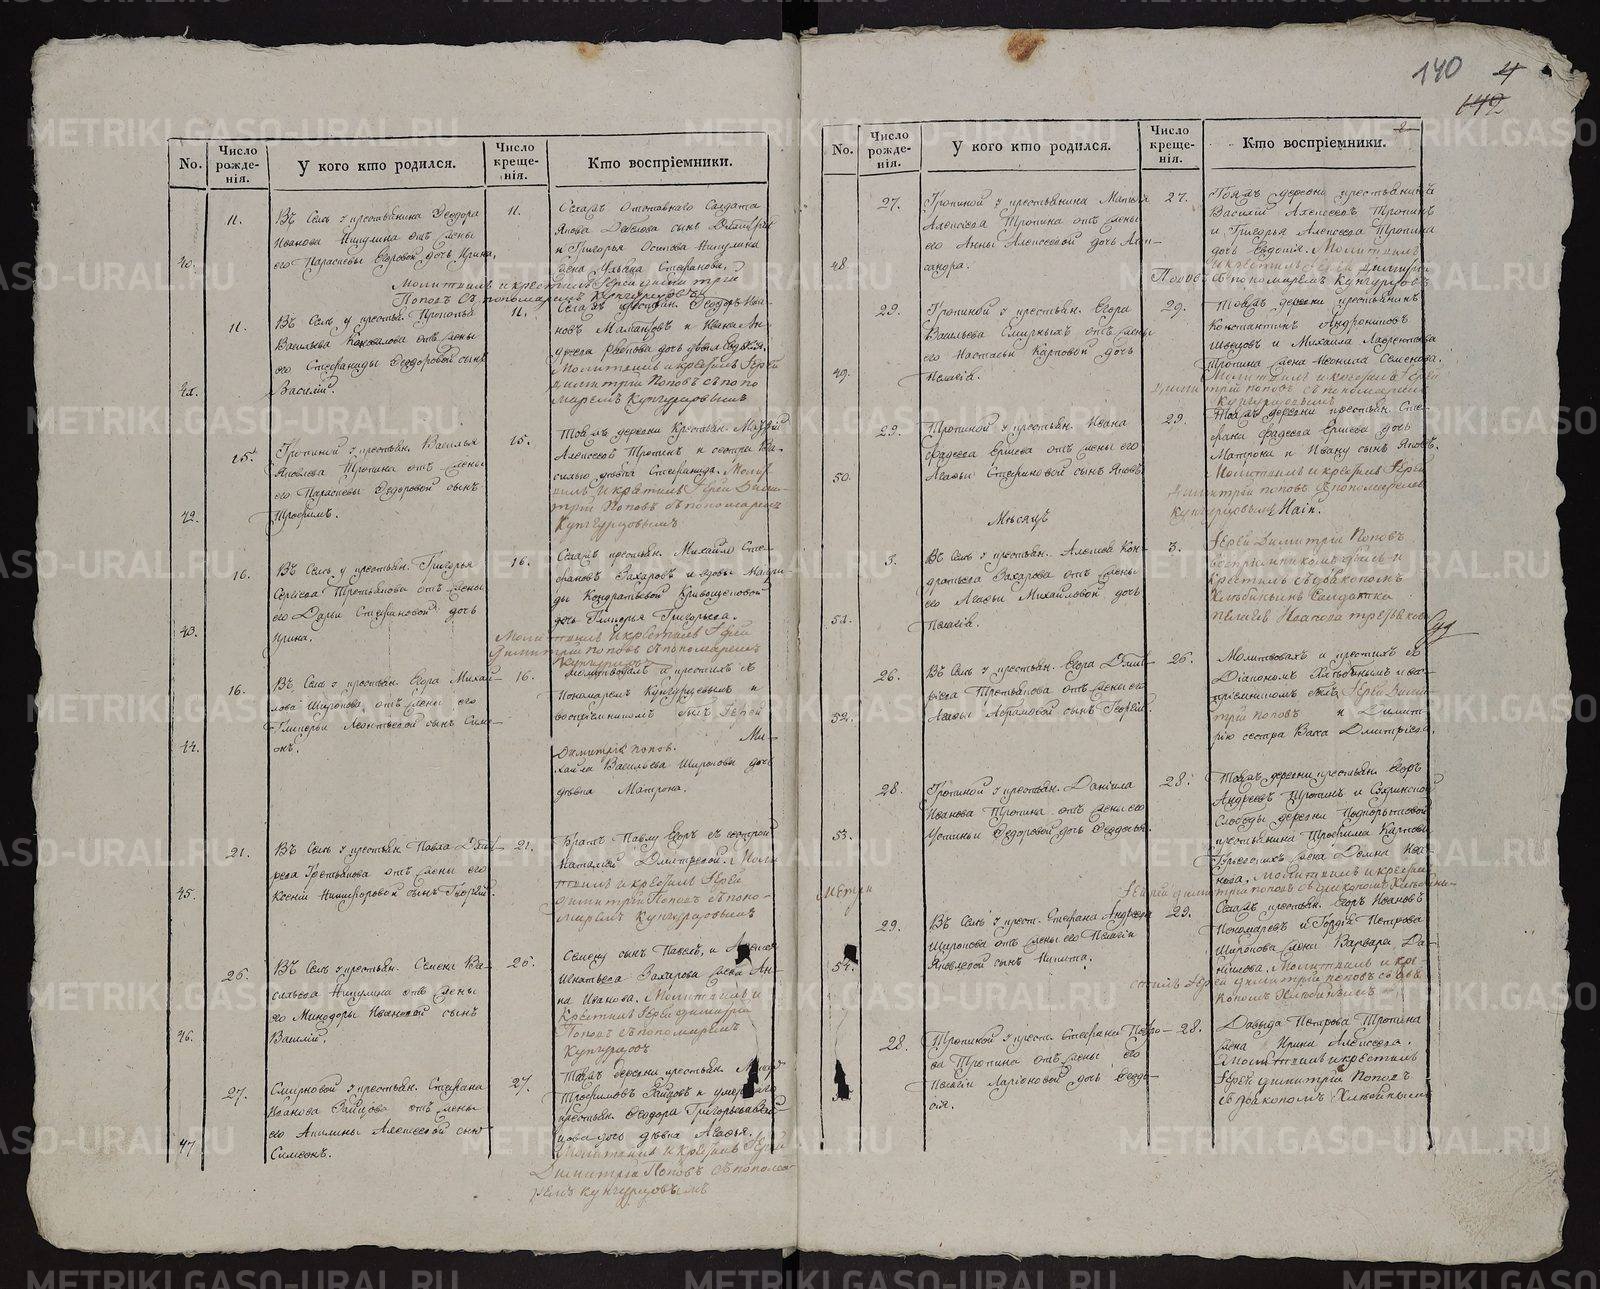 140 4
142
No.
Число рожде-нія.
У кого кто родился.
Число креще-нія.
Кто воспріемники.
40.
11.
Въ Селѣ у крестьянина Ѳеодора
Иванова Никулина отъ жены
его Парасковьи Егоровой дочь Ирина,
11.
Селаже отставнаго Солдата
Якова сынъ Димитрій
и Григорья Осипова Никулина
жена Ульяна Стефанова,
Молитвилъ и крестилъ Іерей Димитрій
Поповъ съ пономаремъ Кунгурцовымъ
41.
11.
Въ Селѣ у крестьян. Прокопья
Васильева Коновалова отъ жены
его Стефаниды Ѳеодоровой сынъ
Василій.
11.
Селаже крестьян. Ѳеодоръ Ива-
новъ и Ивана Ан-
дреева дочь дѣвка
Молитвилъ и крестилъ Іерей
Димитрій Поповъ съ поно
маремъ Кунгурцовымъ
42.
15.
Тропиной у крестьян. Василья
Яковлева Тропина отъ жены
его Парасковьи Ѳедоровой сынъ
Трофимъ.
15.
Тоежъ деревни крестьян.
Алексеевъ Тропинъ и сестра Ва-
силью дѣвка Стефанида. Молит
вилъ и крестилъ Іерей Дими-
трій Поповъ съ пономаремъ
Кунгурцовымъ
43.
16.
Въ Селѣ у крестьян. Григорья
Сергѣева Третьякова отъ жены
его Дарьи Стефановой дочь
Ирина.
16.
Селаже крестьян. Михайло Сте-
фановъ Захаровъ и вдовы
Кондратьевой Кривощековой
дочь Григорьева.
Молитвилъ и крестилъ Іерей
Димитрій Поповъ съ пономаремъ
Кунгурцовы
44.
16.
Въ Селѣ у крестьян. Егора Михай-
лова Широкова отъ жены его
Гликерьи Леонтьевой сынъ Симе-
онъ.
16.
Молитвовалъ и крестилъ съ
Пономаремъ Кунгурцевымъ и
воспріемникомъ былъ Іерей
Димитрій Попов. Ми-
хайла Васильева Широкова дочь
дѣвка Матрона.
45.
21.
Въ Селѣ у крестьян. Павла Дмит-
реева Третьякова отъ жены его
Ксеніи Никифоровой сынъ Георгій.
21.
Братъ Павлу Егоръ съ сестрой
Наталіей Дмитревой. Моли
твилъ и крестилъ Іерей
Димитрій Поповъ съ поно-
маремъ Кунгурцовымъ
46.
25.
Въ Селѣ у крестьян. Семена Ва-
сильева Никулина отъ жены
его Минодоры Ивановой сынъ
Василій.
25.
Семену сынъ Павелъ, и
Игнатьева Захарова жена Ан-
на Иванова. Молитвилъ и
Крестилъ Іерей Димитрій
Поповъ съ пономаремъ
Кунгурцов
47
27.
Смирновой у крестьян. Стефана
Иванова Зайцова отъ жены
его Акилины Алексеевой сынъ
Симеонъ.
27.
Тоежъ деревни крестьян.
Трофимовъ Зайцовъ и умершаго
крестьян. Ѳеодора Григорьева Зай-
цова дочь дѣвка Агафья.
Молитвилъ и крестилъ Іерей
Димитрій Поповъ съ понома-
ремъ Кунгурцовымъ
No.
Число рожде-нія.
У кого кто родился.
Число креще-нія.
Кто воспріемники.
48.
27.
Тропиной у крестьянина Матвѣя
Алексеева Тропина отъ жены
его Анны Алексеевой дочь Алек-
сандра.
27.
Тоежъ деревни крестьянинъ
Василій Алексеевъ Тропинъ
и Григорья Алексеева Тропина
дочь Евдокія. Молитвилъ
и крестилъ Іерей Димитрій
Поповъ съ пономаремъ Кунгурцовъ
49.
29.
Тропиной у крестьян. Егора
Васильева Смирныхъ отъ жены
его Настасьи Карповой дочь
Пелагія.
29.
Тоежъ деревни крестьянинъ
Константинъ Андрониковъ
Швецовъ и Михаила Лаврентьева
Тропина жена Неонила Семенова.
Молитвилъ и крестилъ Іерей
Димитрій Поповъ съ пономаремъ
Кунгурцовымъ
50.
29.
Тропиной у крестьян. Ивана
Фадеева Ершева отъ жены его
Агафьи Стефановой сынъ Яковъ.
29.
Тоежъ деревни крестьян. Сте-
фана Фадеева Ершева дочь
Матрона и Ивану сынъ Яковъ.
Молитвилъ и крестилъ Іерей
Димитрій Поповъ съ пономаремъ
Кунгурцовымъ
Мѣсяцъ Маій.
51.
3.
Въ Селѣ у крестьян. Алексея Кон-
дратьева Захарова отъ жены
его Агафьи Михайловой дочь
Пелагія.
3.
Іерей Димитрій Поповъ
воспріемникомъ былъ и
крестилъ съ Діакономъ
Хлѣбинымъ Солдатка
Пелагея Иванова Третьякова
52.
26.
Въ Селѣ у крестьян. Егора Дмит-
ріева Третьякова отъ жены его
Агафьи Абрамовой сынъ Георгій.
26.
Молитвовалъ и крестилъ съ
Діакономъ Хлѣбинымъ и вос-
пріемникомъ былъ Іерей Дими-
трій Поповъ и Димит-
рію сестра Васса Дмитріева.
53.
28.
Тропиной у крестьян. Даніила
Иванова Тропина отъ жены его
Устиньи Ѳедоровой дочь Ѳеодосья.
28.
Тоежъ деревни крестьян. Егоръ
Андреевъ Тропинъ и
Слободы деревни
крестьянина Трофима Карпова
жена Домна Ива-
нова. Молитвилъ и крестилъ
Іерей Димитрій Поповъ съ Диакономъ Хлѣбины-
Метри
54.
29.
Въ Селѣ у крест. Стефана Андреева
Широкова отъ жены его Пелагіи
Яковлевой сынъ Никита.
29.
Селаже крестьян. Егоръ Ивановъ
Пономаревъ и Гордія Петрова
Широкова жена Варвара Да-
нилова. Молитвилъ и кре-
стилъ Іерей Димитрій Поповъ съ диа
кономъ Хлѣбинымъ
28.
Тропиной у крест. Стефана Петро-
ва Тропина отъ жены его
Пелагіи Ларіоновой дочь Ѳеодо-
сія.
28.
Давыда Петрова Тропина
жена Ирина Алексеева.
Молитвилъ и крестилъ
Іерей Димитрій Поповъ
съ Диакономъ Хлѣбинымъ
METRIKI.GASO-URAL.RU